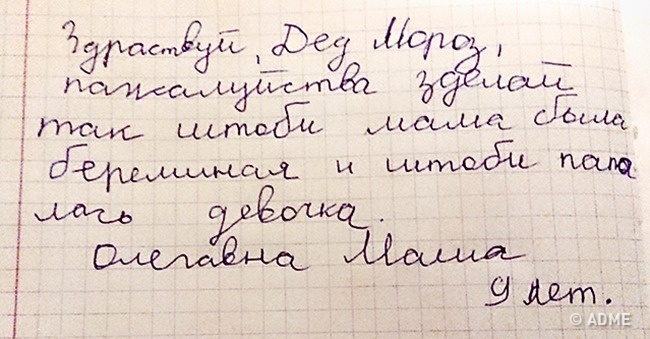 Здраствуй, Дед Мороз,
пажалуйства зделай
так штоби мама была
беременая и штоби папа
лась девочка.
Олегавна Маша
9 лет.
© ADME